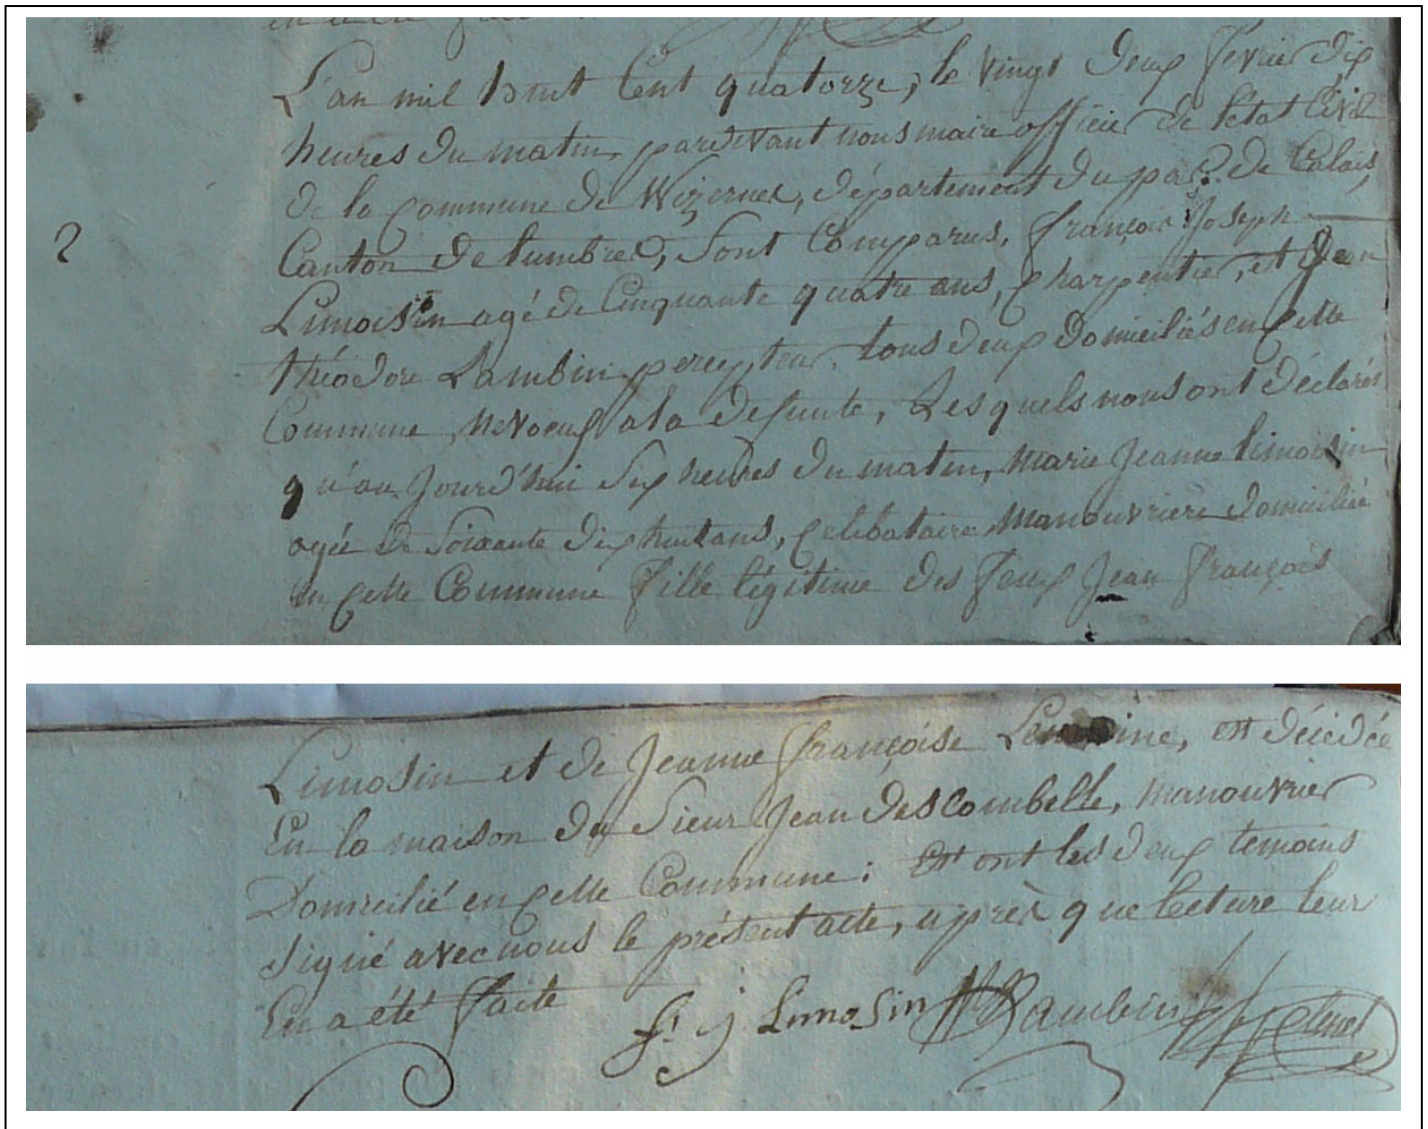 L'an mil huit Cent quatorze, le vingt deux février dix
heures du matin pardevant nous maire officier de l'état Civil
de la Commune de Wizernes, département du pas de Calais,
Canton de lumbres, sont Comparus, françois Joseph
Limoisin agé de Cinquante quatre ans, Charpentier, et Jean
théodore Lambin percepteur tous deux domiciliés en Cette
Commune, neveux a la defunte, Lesquels nous ont déclarés
qu'au Jourd'hui Six heures du matin, Marie Jeanne limoisin
agée de Soixante dix huit ans, Celibataire Manouvrière domiciliée
en Cette Commune fille légitime des feux Jean François
2
Limosin et de Jeanne françoise, est décédée
En la maison du Sieur Jean descombelle, manouvrier
Domicilié en Cette Commune; Et ont les deux temoins
signé avec nous le présent acte, après que lecture leur
En a été faite f. j Limosin Lambin